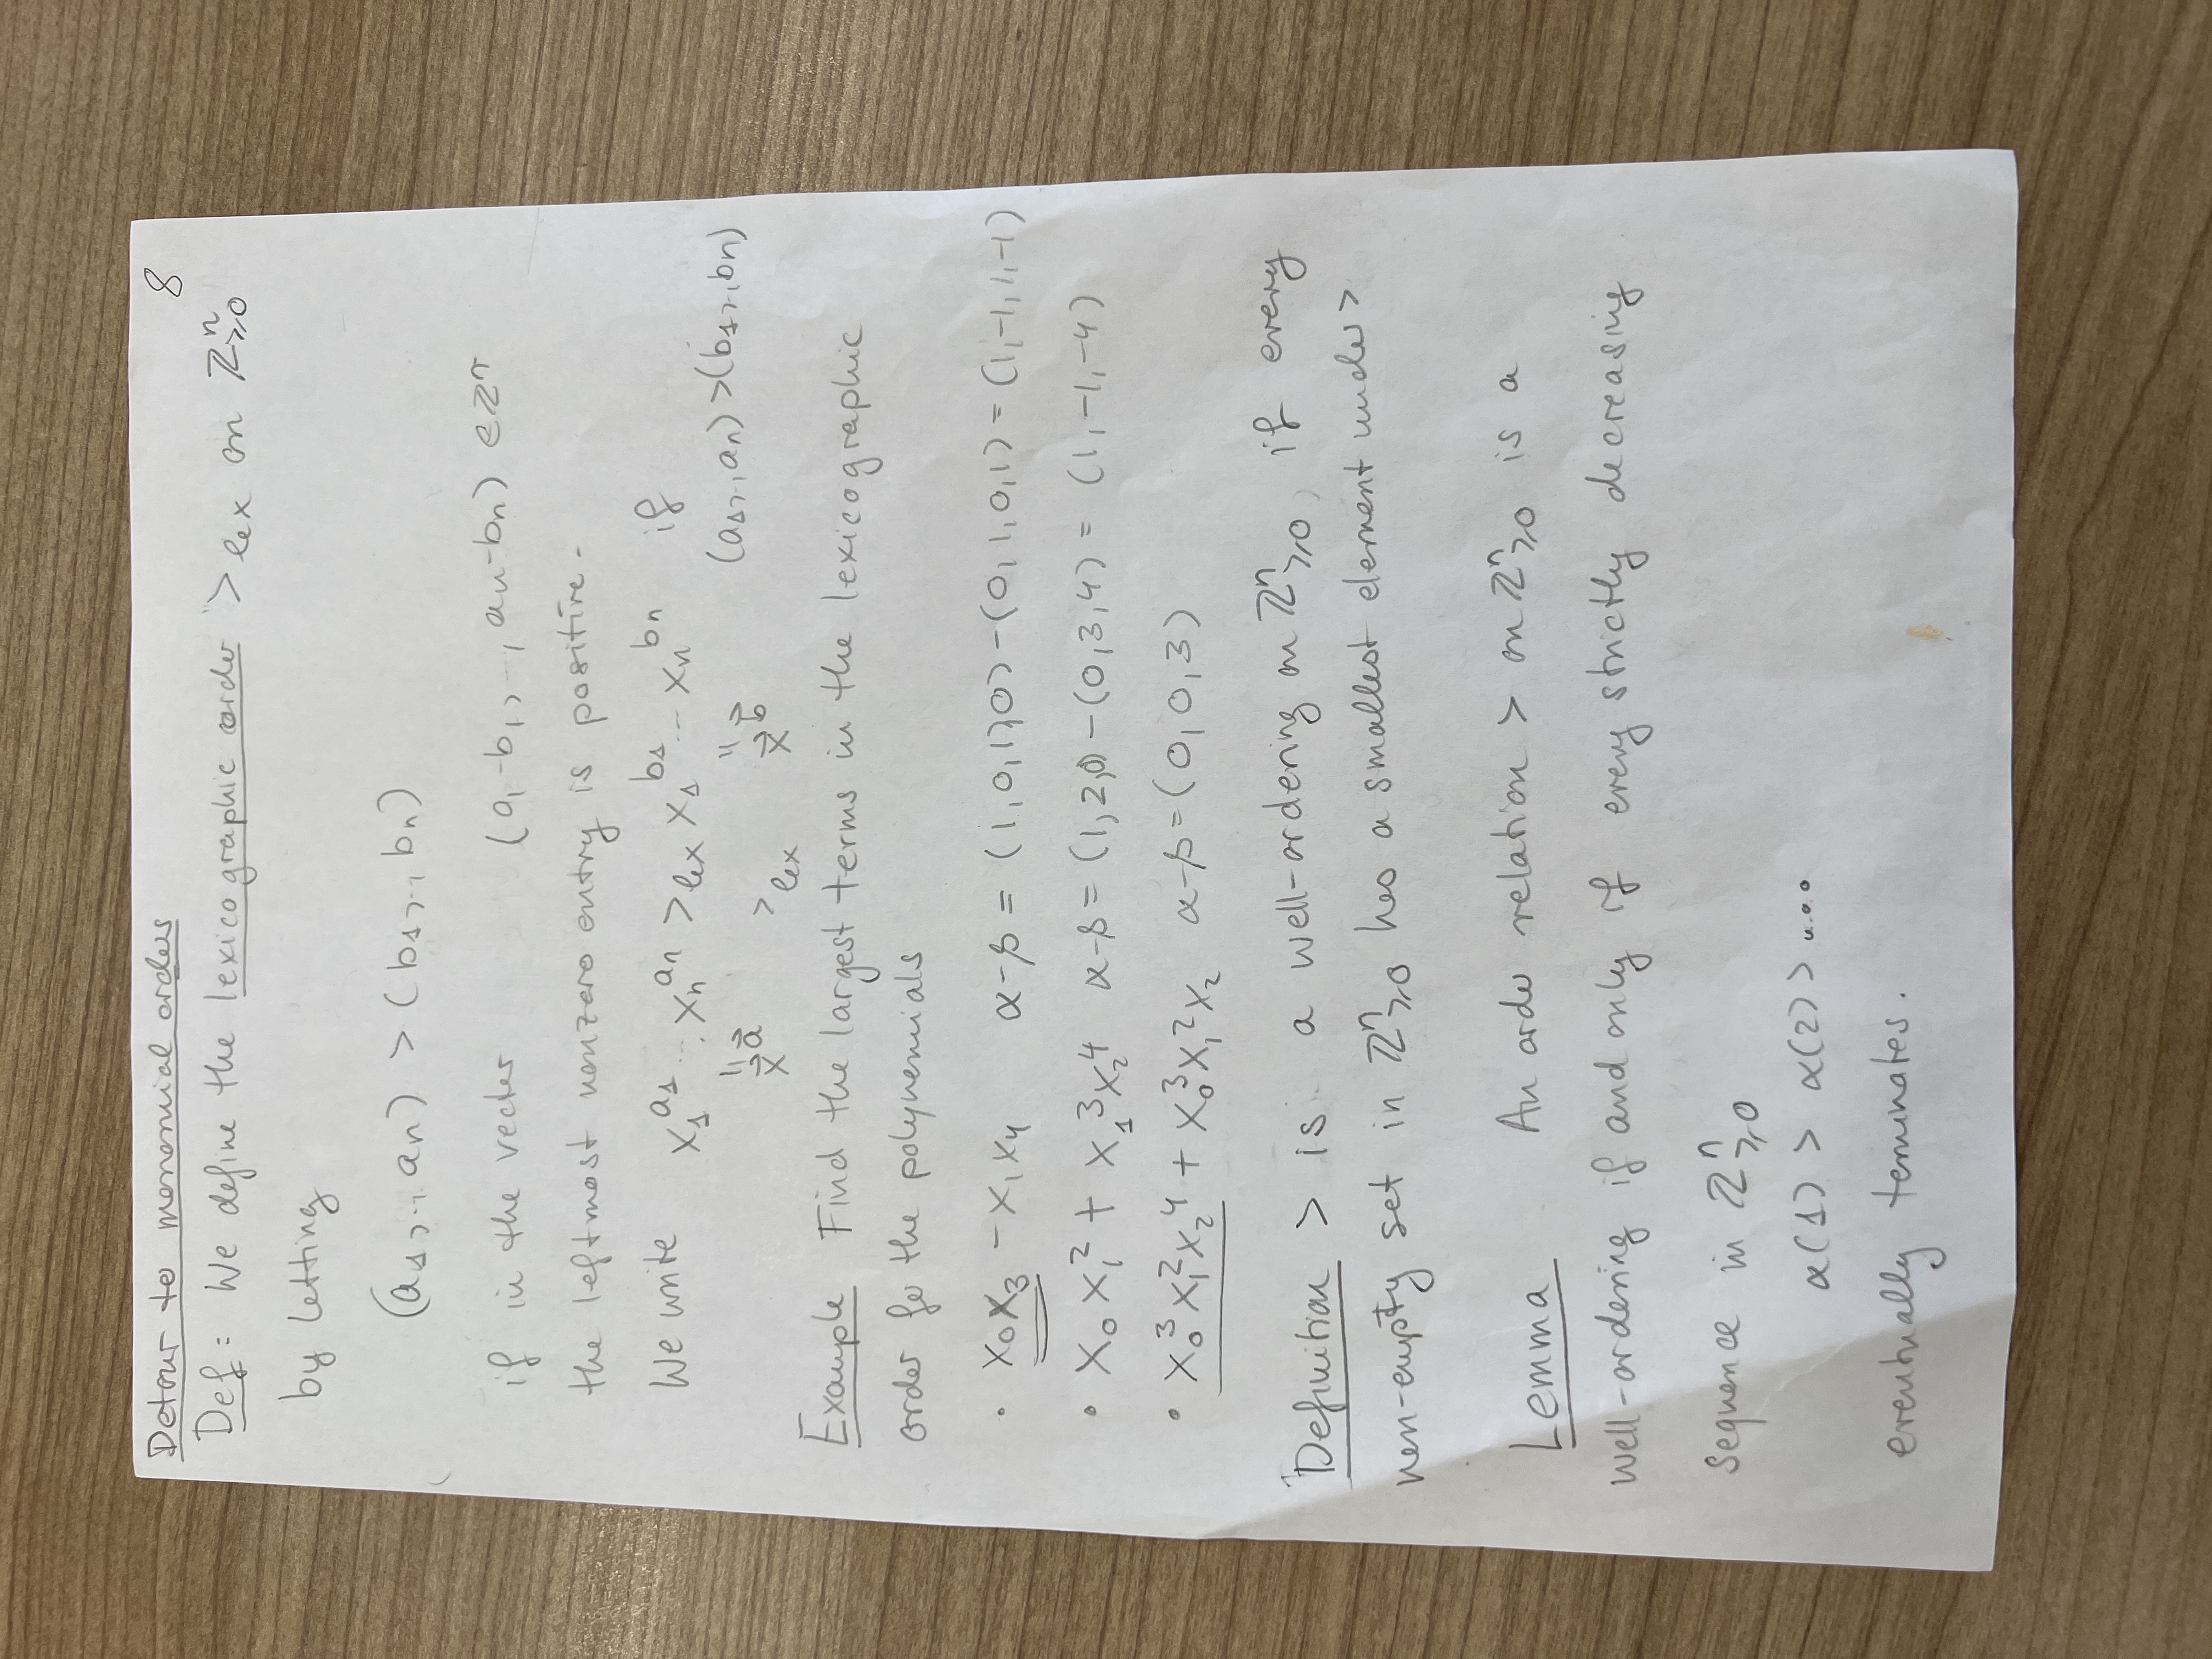 Detour to monomial orders 8
Def: We define the lexicographic order >_lex on ℤ^n_≥0
by letting
(a_1,.., a_n) > (b_1,.., b_n)
if in the vector (a_1-b_1, .., a_n-b_n) ∈ ℤ^n
the leftmost nonzero entry is positive.
We write x_1^a_1 ... x_n^a_n >_lex x_1^b_1 ... x_n^b_n if
(a_1,.,a_n) > (b_1,.,b_n)
" "
x⃗^a⃗ >_lex x⃗^b⃗
Example Find the largest terms in the lexicographic
order fo the polynomials
• x_0x_3 - x_1x_4 α-β = (1,0,1,0)-(0,1,0,1) = (1,-1,1,-1)
• x_0x_1^2 + x_1^3x_2^4 α-β = (1,2,0)-(0,3,4) = (1,-1,-4)
• x_0^3x_1^2x_2^4 + x_0^3x_1^2x_2 α-β=(0,0,3)
Definition > is a well-ordering on ℤ^n_≥0, if every
non-empty set in ℤ^n_≥0 has a smallest element under >
Lemma An order relation > on ℤ^n_≥0 is a
well-ordering if and only if every strictly decreasing
sequence in ℤ^n_≥0
α(1) > α(2) > ....
eventually terminates.